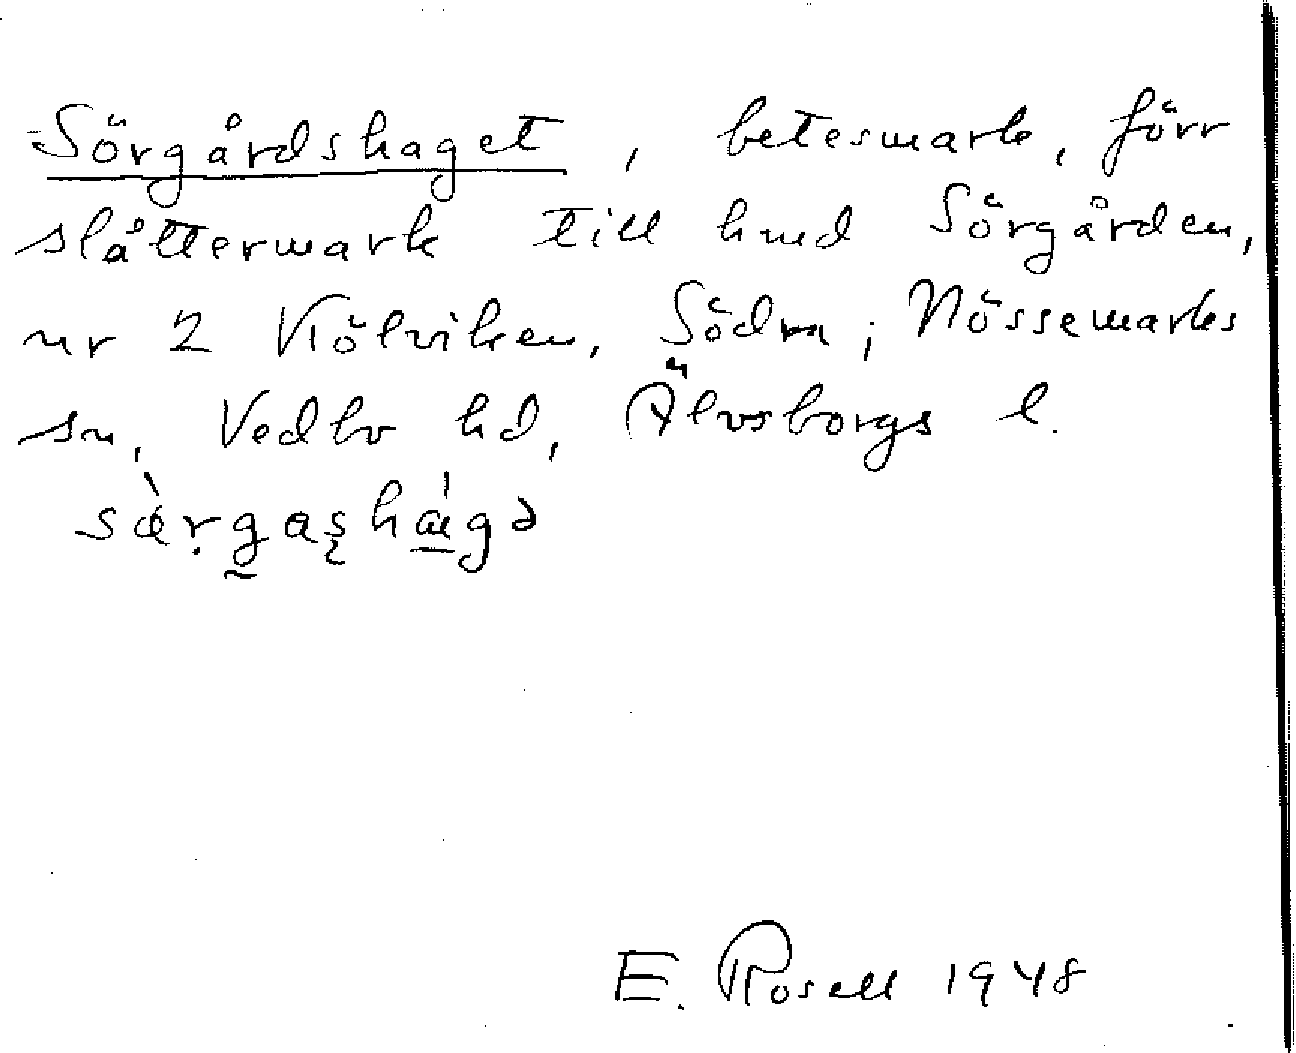 Sörgårdshaget, betesmark, förr
slåttermark till hmd Sörgården,
nr 2 Kölviken, Södra, Nössemarks
sn, Vedbo hd, Älvsborgs l.
E. Rosell 1948